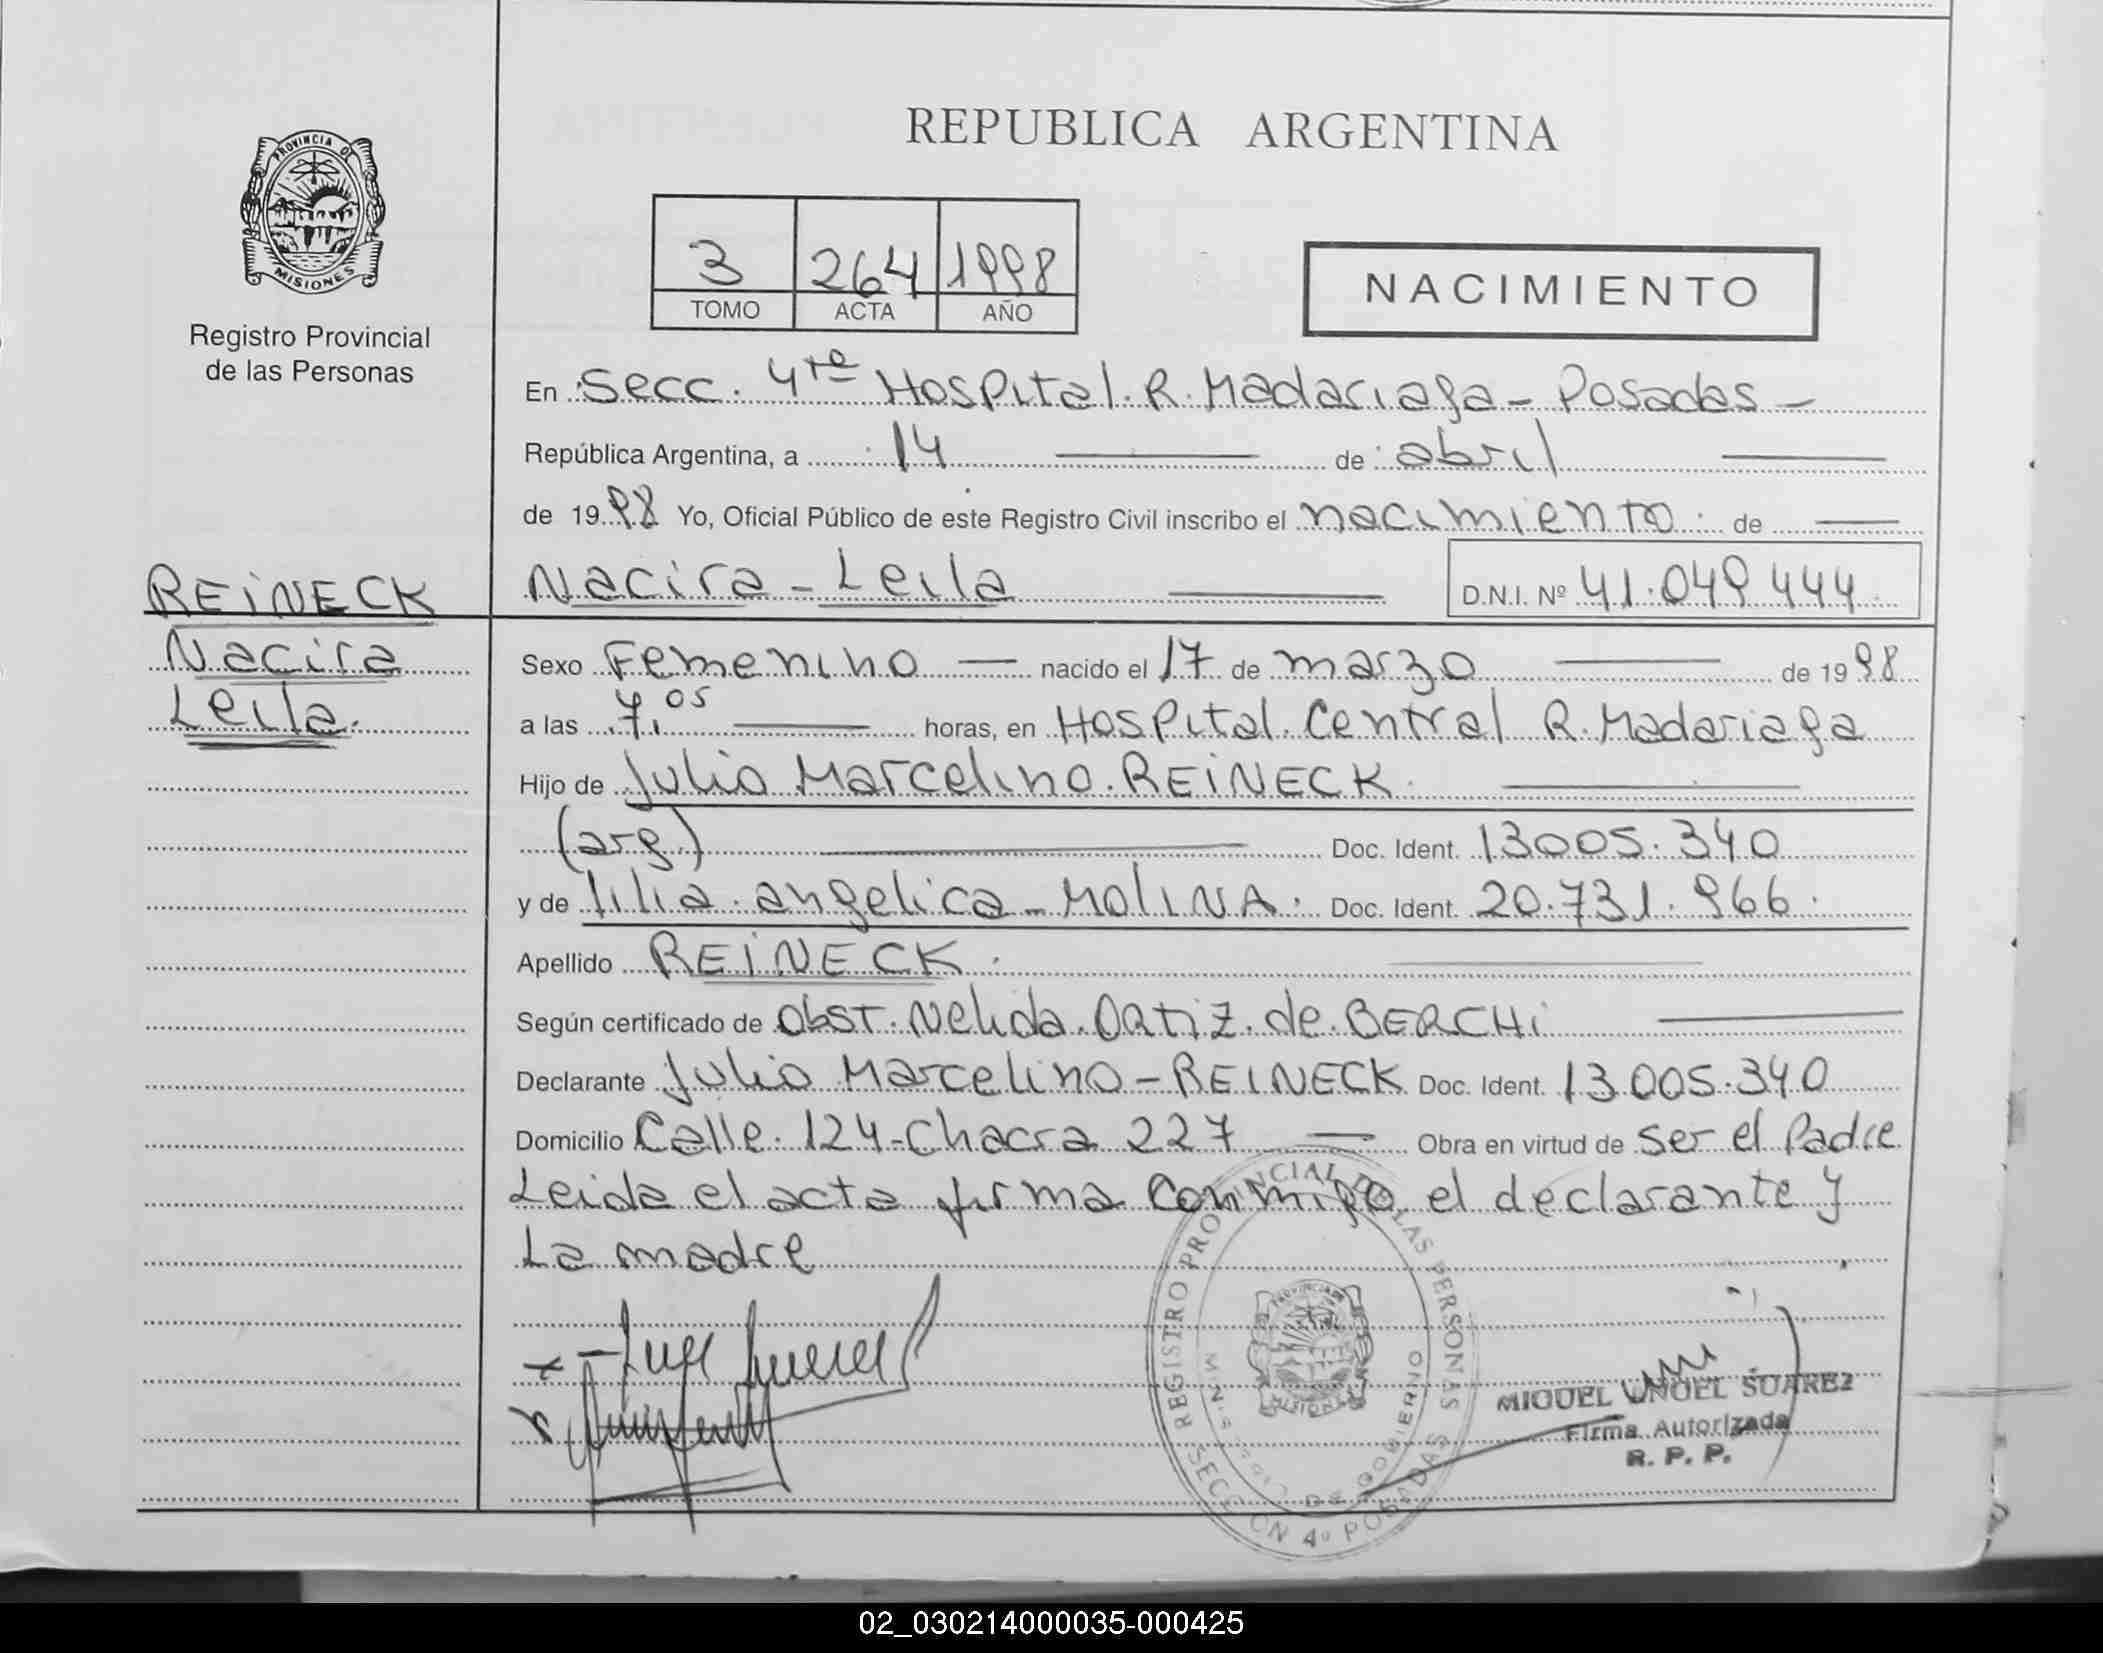 REPUBLICA ARGENTINA
PROVINCIA DE
MISIONES
Registro Provincial
de las Personas
3 264 1998
TOMO ACTA AÑO
NACIMIENTO
En Secc. 4ta Hospital. R. Madariaga - Posadas -
República Argentina, a 14 de abril
de 1998 Yo, Oficial Público de este Registro Civil inscribo el nacimiento. de
Nacira - Leila D.N.I. Nº 41.049.444
REINECK
Nacira
Leila.
Sexo Femenino nacido el 17 de marzo de 1998
a las 7,05 horas, en Hospital Central R. Madariaga
Hijo de Julio Marcelino. REINECK.
(arg) Doc. Ident. 13005.340
y de lilia. angelica - MOLINA. Doc. Ident. 20.731.966.
Apellido REINECK.
Según certificado de Obst. Nelida. Ortiz. de. BERCHI
Declarante Julio Marcelino - REINECK Doc. Ident. 13.005.340
Domicilio Calle. 124 - Chacra 227 Obra en virtud de ser el Padre
Leida el acta firma conmigo el declarante y
La madre
REGISTRO PROVINCIAL DE LAS PERSONAS
MINISTERIO DE GOBIERNO
PROVINCIA DE
MISIONES
SECCION 4º POSADAS
MIGUEL ANGEL SUAREZ
Firma Autorizada
R. P. P.
02_030214000035-000425